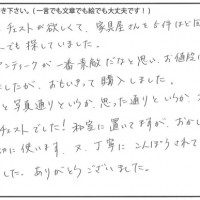 き下さい。(一言でも文章でも絵でも大丈夫です！)
チェストが欲しくて、家具屋さんを何件ほど回
でも探していました。
アンティークが一番素敵だなと思い、お値段
ましたが、おもいきって購入しました。
と写真通りというか、思った通りというか、
チェストでした! 和室に置いてますが、おかし
切に使います。又、丁寧にこんぽうされて
した。ありがとうございました。